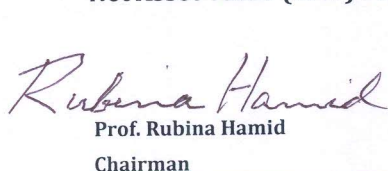 Rubina Hamid
Prof. Rubina Hamid
Chairman